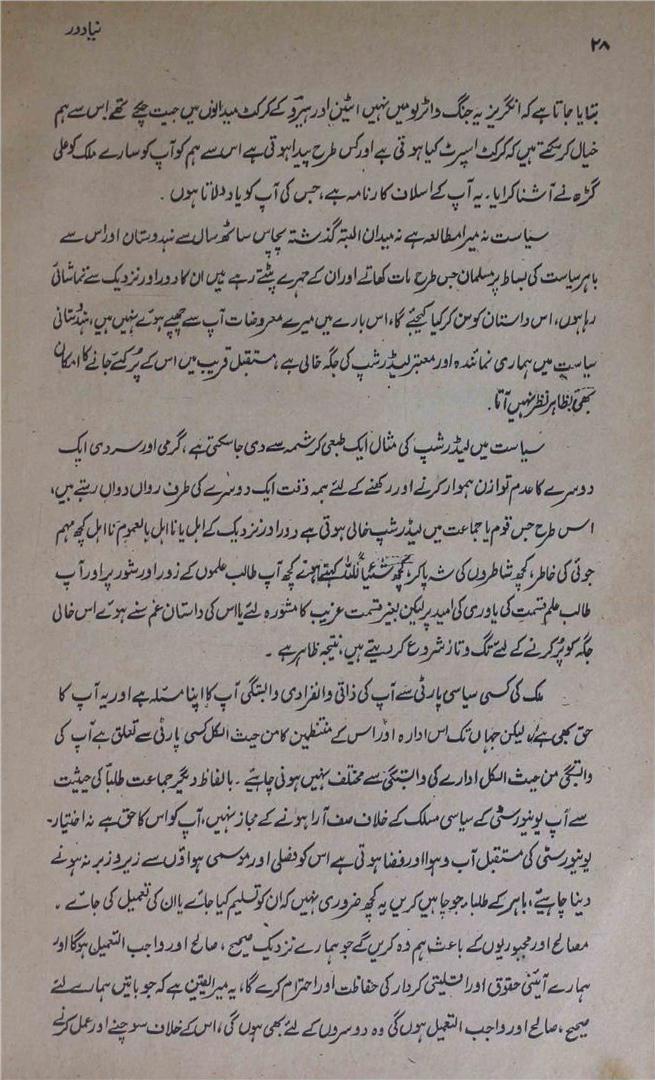 نیا دور
۲۸
بتایا جاتا ہے کہ انگریز یہ جنگ واٹر لو میں نہیں اٹین اور ہیرو کے کرکٹ میدانوں میں جیت چکے تھے اس سے ہم
خیال کر سکتے ہیں کہ کرکٹ اسپرٹ کیا ہوتی ہے اور کس طرح پیدا ہوتی ہے اس سے ہم کو آپ کو سارے ملک کو علی
گڑھ نے آشنا کرایا۔ یہ آپ کے اسلاف کا رنامہ ہے، جس کی آپ کو یاد دلاتا ہوں۔
سیاست نہ میرا مطالعہ ہے نہ میدان البتہ گذشتہ پچاس ساٹھ سال سے ہندوستان اور اس سے
باہر سیاست کی بساط پر مسلمان جس طرح مات کھاتے اور ان کے مہرے پٹتے رہے ہیں ان کا دور اور نزدیک سے تماشائی
رہا ہوں، اس داستان کو سن کر کیا کیجئے گا، اس بارے میں میرے معروضات آپ سے چھپے ہوئے نہیں ہیں، ہندوستانی
سیاست میں ہماری نمائندہ اور معتبر لیڈر شپ کی جگہ خالی ہے، مستقبل قریب میں اس کے پُر کئے جانے کا امکان
بھی بظاہر نظر نہیں آتا۔
سیاست میں لیڈر شپ کی مثال ایک طبعی کرشمہ سے دی جا سکتی ہے، گرمی اور سردی ایک
دوسرے کا عدم توازن ہموار کرنے اور رکھنے کے لئے ہمہ وقت ایک دوسرے کی طرف رواں دواں رہتے ہیں،
اس طرح جس قوم یا جماعت میں لیڈر شپ خالی ہوتی ہے دور اور نزدیک کے اہل یا نا اہل بالعموم نا اہل کچھ مہم
جوئی کی خاطر، کچھ شاطروں کی شہ پاکر، کچھ شیئاً للہ کہتے ہوئے کچھ آپ طالب علموں کے زور اور شور پر اور آپ
طالب علم قسمت کی یاوری کی امید پر لیکن بغیر قسمت غریب کا مشورہ لئے یا اس کی داستان غم سنے ہوئے اس خالی
جگہ کو پُر کرنے کے لئے تگ و تاز شروع کر دیتے ہیں، نتیجہ ظاہر ہے۔
ملک کی کسی سیاسی پارٹی سے آپ کی ذاتی و انفرادی وابستگی آپ کا اپنا مسئلہ ہے اور یہ آپ کا
حق بھی ہے، لیکن جہاں تک اس ادارہ اور اس کے منتظمین کا من حیث الکل کسی پارٹی سے تعلق ہے آپ کی
وابستگی من حیث الکل ادارے کی وابستگی سے مختلف نہیں ہونی چاہئے۔ بالفاظ دیگر جماعت طلبا کی حیثیت
سے آپ یونیورسٹی کے سیاسی مسلک کے خلاف صف آرا ہونے کے مجاز نہیں، آپ کو اس کا حق ہے نہ اختیار۔
یونیورسٹی کی مستقبل آب و ہوا اور فضا ہوتی ہے اس کو فصلی اور موسمی ہواؤں سے زیر و زبر نہ ہونے
دینا چاہیئے، باہر کے طلباء جو چاہیں کریں یہ کچھ ضروری نہیں کہ ان کو تسلیم کیا جائے یا ان کی تعمیل کی جائے۔
مصالح اور مجبوریوں کے باعث ہم وہ کریں گے جو ہمارے نزدیک صحیح، صالح اور واجب التعمیل ہوگا اور
ہمارے آئینی حقوق اور اقلیتی کردار کی حفاظت اور احترام کرے گا، یہ میرا یقین ہے کہ جو باتیں ہمارے لئے
صحیح، صالح اور واجب التعمیل ہوں گی وہ دوسروں کے لئے بھی ہوں گی، اس کے خلاف سوچنے اور عمل کرنے